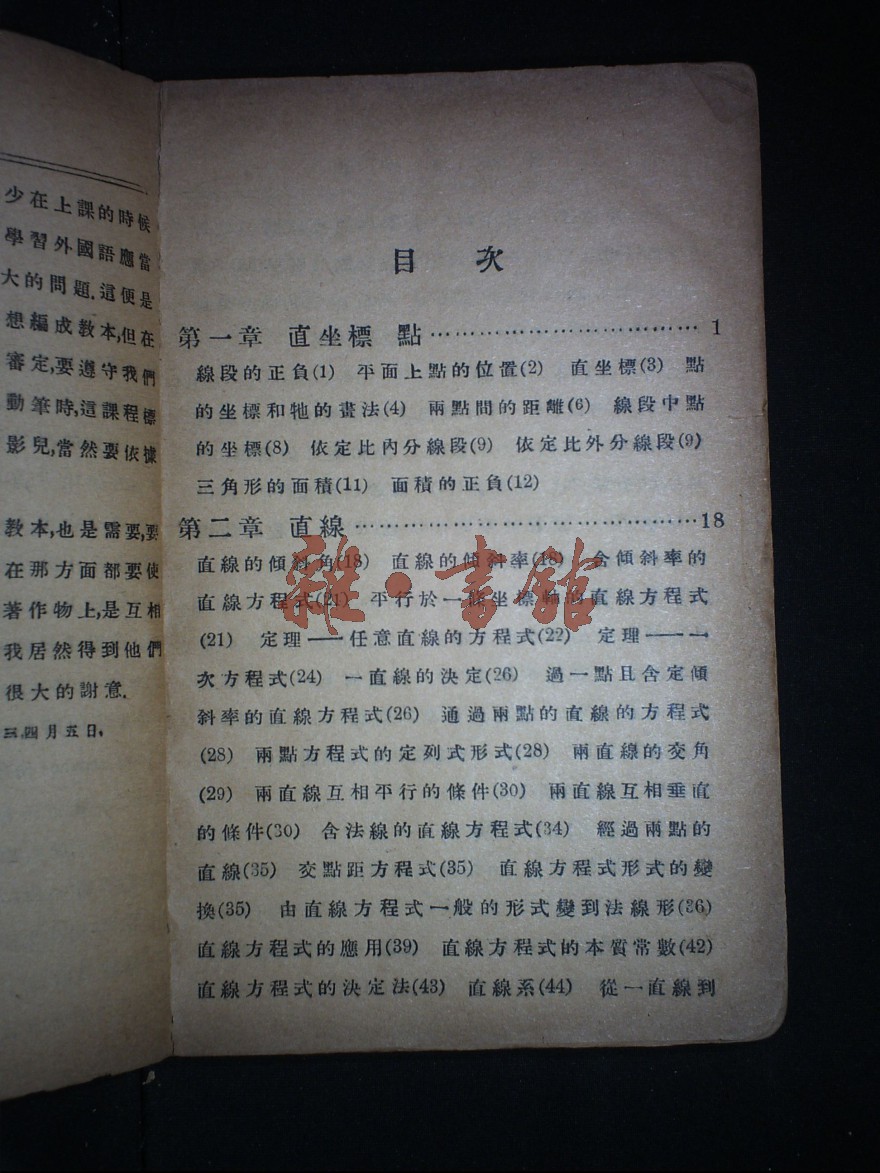 少在上課的時候
學習外國語應當
大的問題.這便是
想編成教本,但在
審定,要遵守我們
動筆時,這課程標
影兒,當然要依據
教本,也是需要,要
在那方面都要使
著作物上,是互相
我居然得到他們
很大的謝意.
三.四月五日.
目 次
第一章 直坐標 點……………………………1
線段的正負(1) 平面上點的位置(2) 直坐標(3) 點
的坐標和牠的畫法(4) 兩點間的距離(6) 線段中點
的坐標(8) 依定比內分線段(9) 依定比外分線段(9)
三角形的面積(11) 面積的正負(12)
第二章 直線……………………………………18
直線的傾斜角(18) 直線的傾斜率(18) 含傾斜率的
直線方程式(21) 平行於一條坐標軸的直線方程式
(21) 定理——任意直線的方程式(22) 定理——一
次方程式(24) 一直線的決定(26) 過一點且含定傾
斜率的直線方程式(26) 通過兩點的直線的方程式
(28) 兩點方程式的定列式形式(28) 兩直線的交角
(29) 兩直線互相平行的條件(30) 兩直線互相垂直
的條件(30) 含法線的直線方程式(34) 經過兩點的
直線(35) 交點距方程式(35) 直線方程式形式的變
換(35) 由直線方程式一般的形式變到法線形(36)
直線方程式的應用(39) 直線方程式的本質常數(42)
直線方程式的決定法(43) 直線系(44) 從一直線到
雜·書館